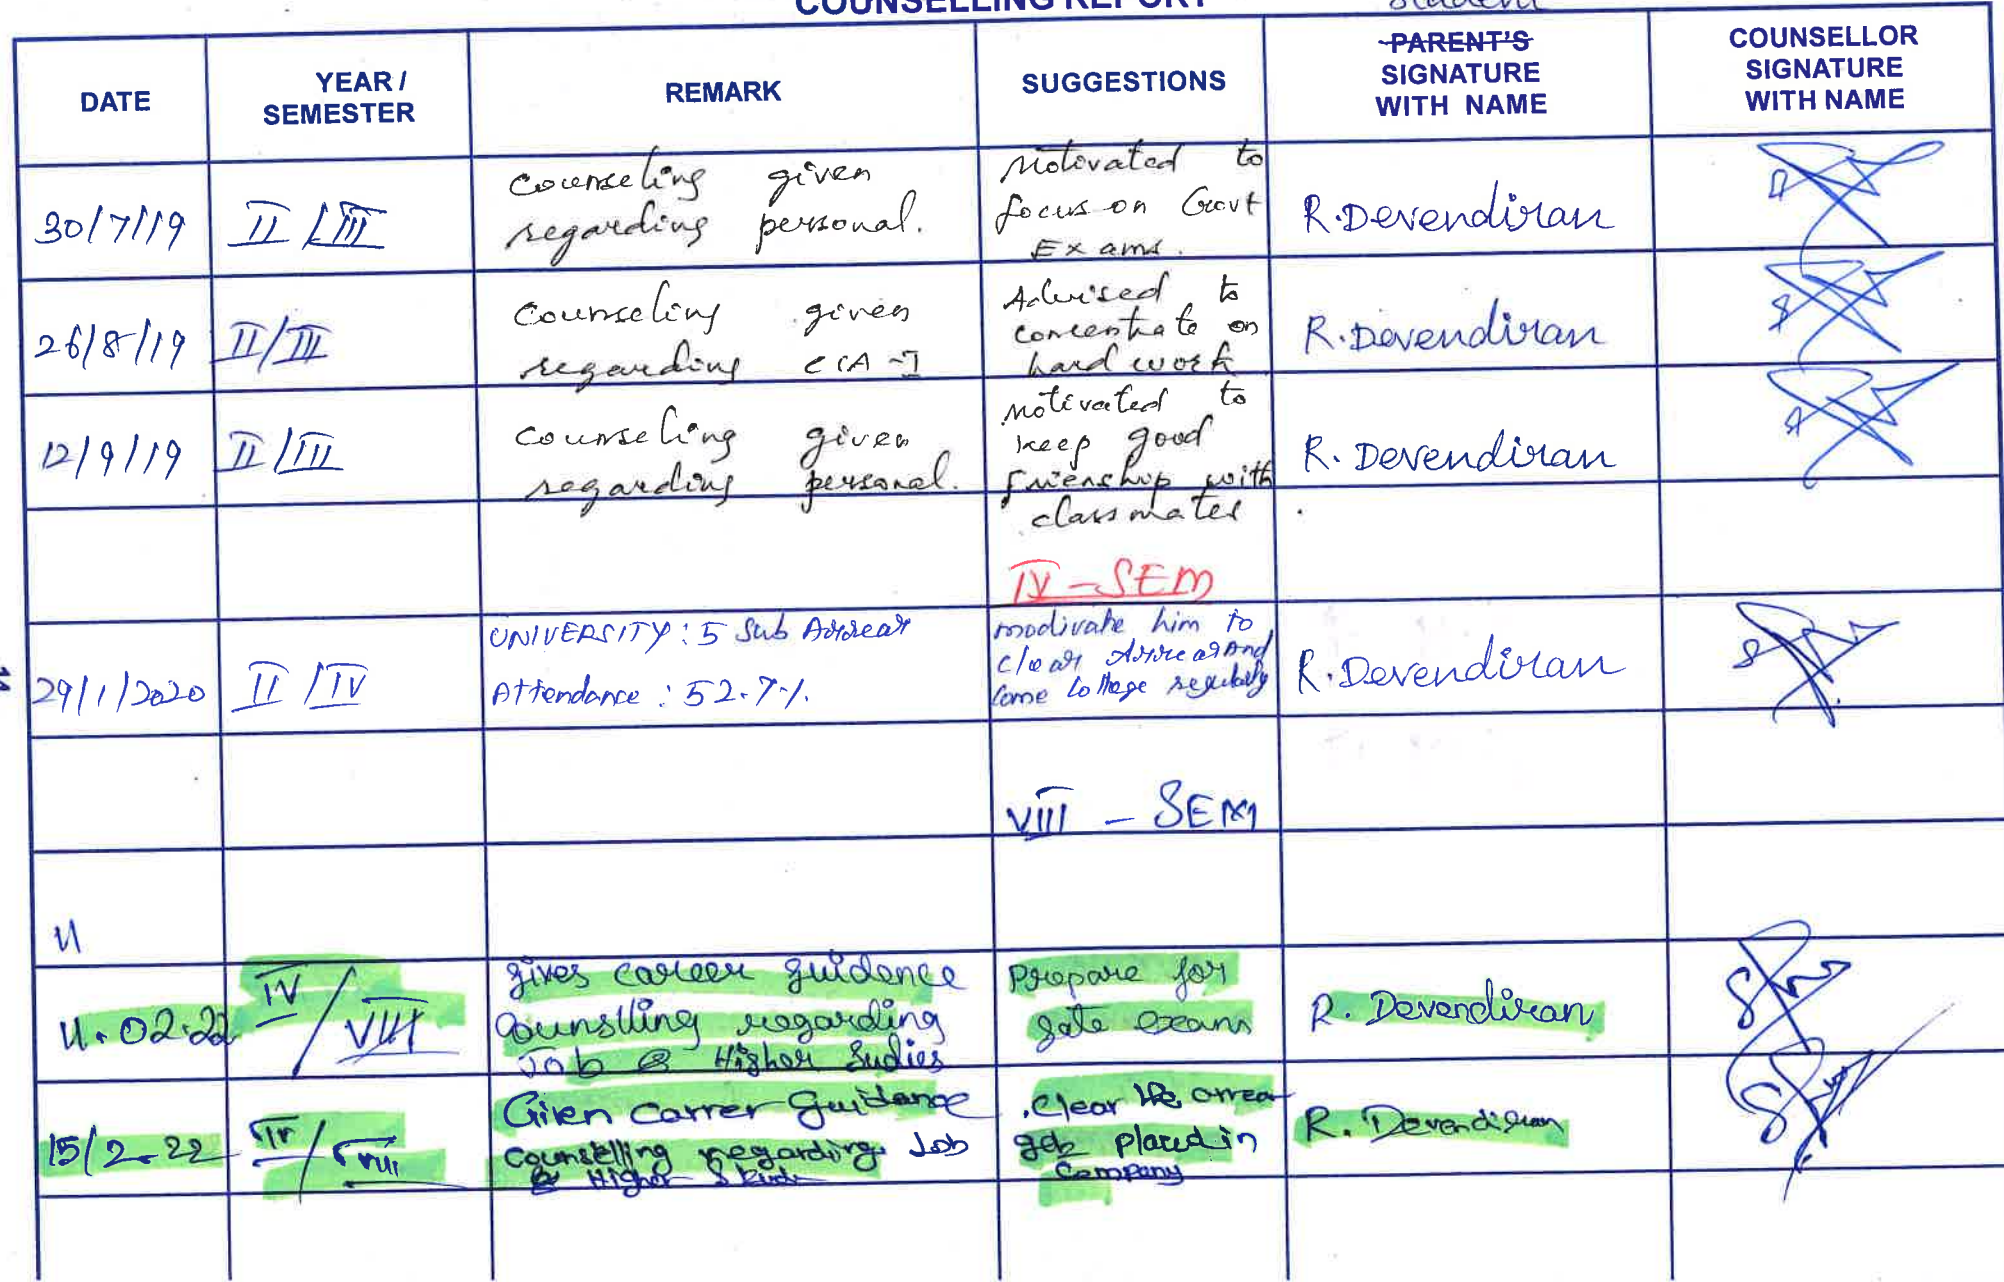 COUNSELLING REPORT
Student
DATE
YEAR /
SEMESTER
REMARK
SUGGESTIONS
PARENT'S
SIGNATURE
WITH NAME
COUNSELLOR
SIGNATURE
WITH NAME
30/7/19
II / III
Counseling given
regarding personal.
Motivated to
focus on Govt
Exams.
R.Devendiran
26/8/19
II/III
Counseling given
regarding CIA-I
Advised to
concentrate on
hard work
R.Devendiran
12/9/19
II/III
counseling given
regarding personal.
motivated to
keep good
frienship with
classmates
R. Devendiran
IV - SEM
29/1/2020
II / IV
UNIVERSITY : 5 Sub Arrear
Attendance : 52.7%
modivate him to
clear Arrear And
Come College regularly
R.Devendiran
VIII - SEM
11
11.02.22
IV / VIII
gives career guidence
counslling regarding
Job & Higher Sudies
Prepare for
gate exam
R. Devendiran
15/2.22
IV / VIII
Given Carrer Guidance
counselling regarding Job
& Higher
.Clear the arrear
get placed in
Company
R. Devendiran